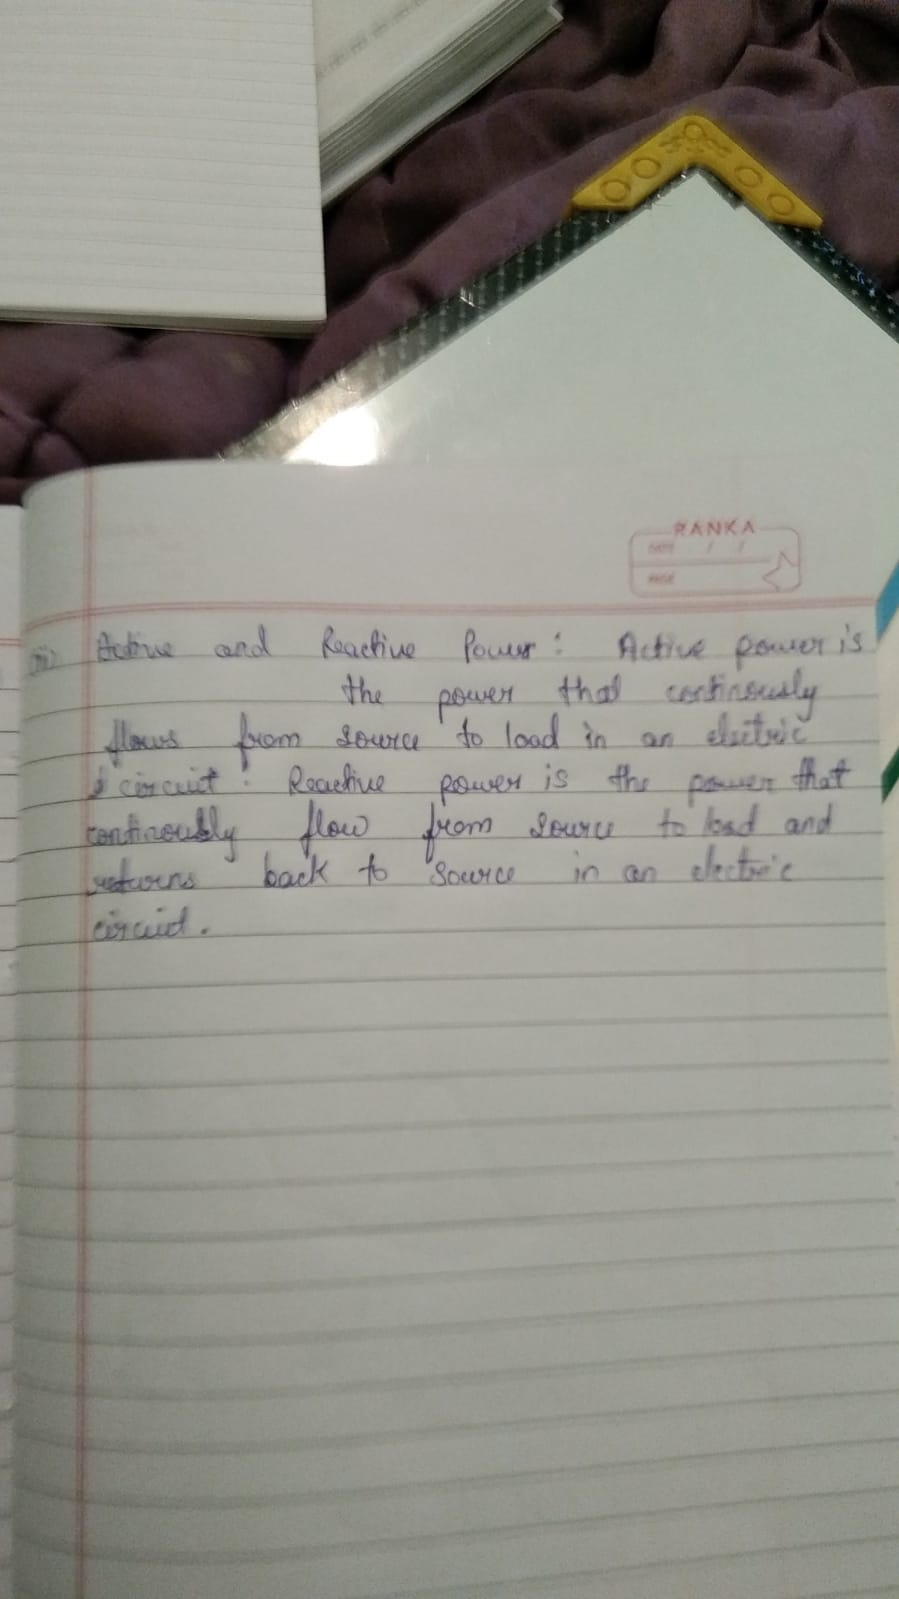 RANKA
DATE / /
PAGE
iii) Active and Reactive Power : Active power is
the power that continously
flows from source to load in an electric
circuit : Reactive power is the power that
continously flow from source to load and
returns back to source in an electric
circuit.